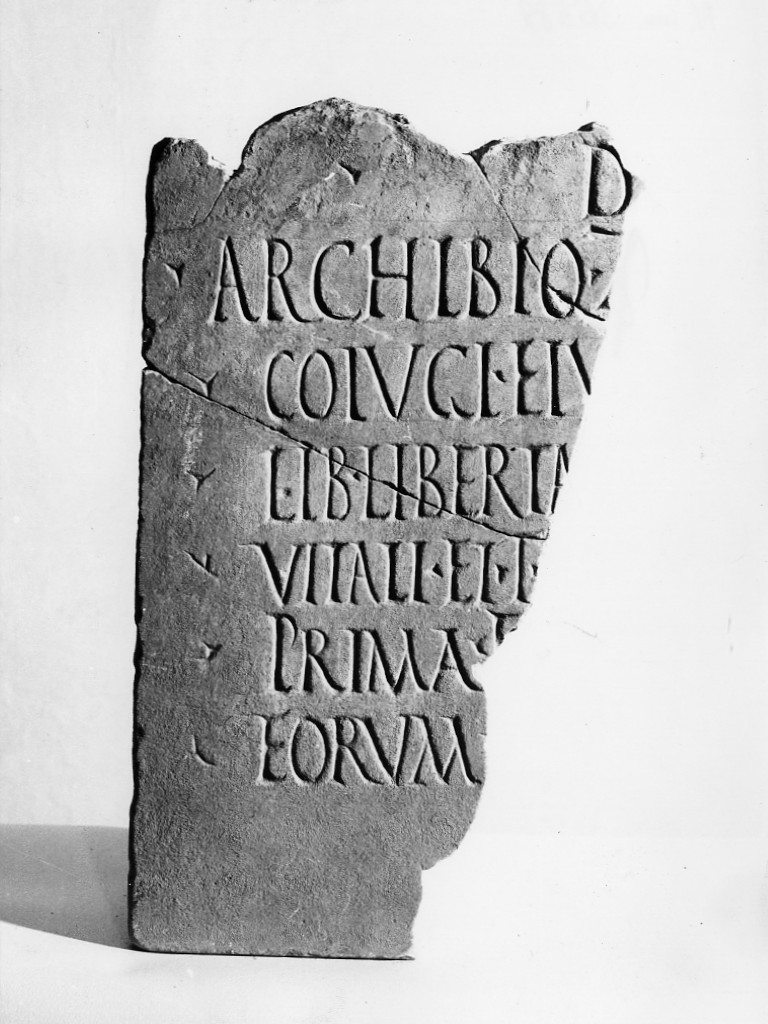 D
ARCHIBIQ
COIVGI·EIV
LIB·LIBERTA
VITALI·ET·
PRIMA·
EORVM